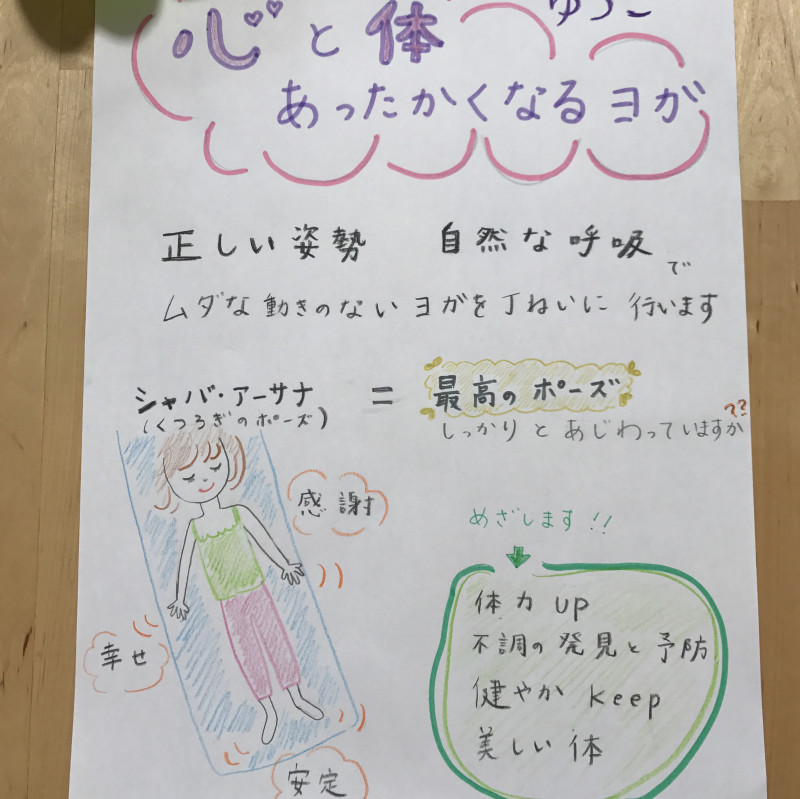 ゆうこ
心と体
あったかくなるヨガ
正しい姿勢 自然な呼吸で
ムダな動きのないヨガを丁ねいに行います
シャバ・アーサナ = 最高のポーズ
(くつろぎのポーズ) しっかりとあじわっていますか??
感謝
めざします!!
体力 UP
不調の発見と予防
幸せ
健やか keep
美しい体
安定